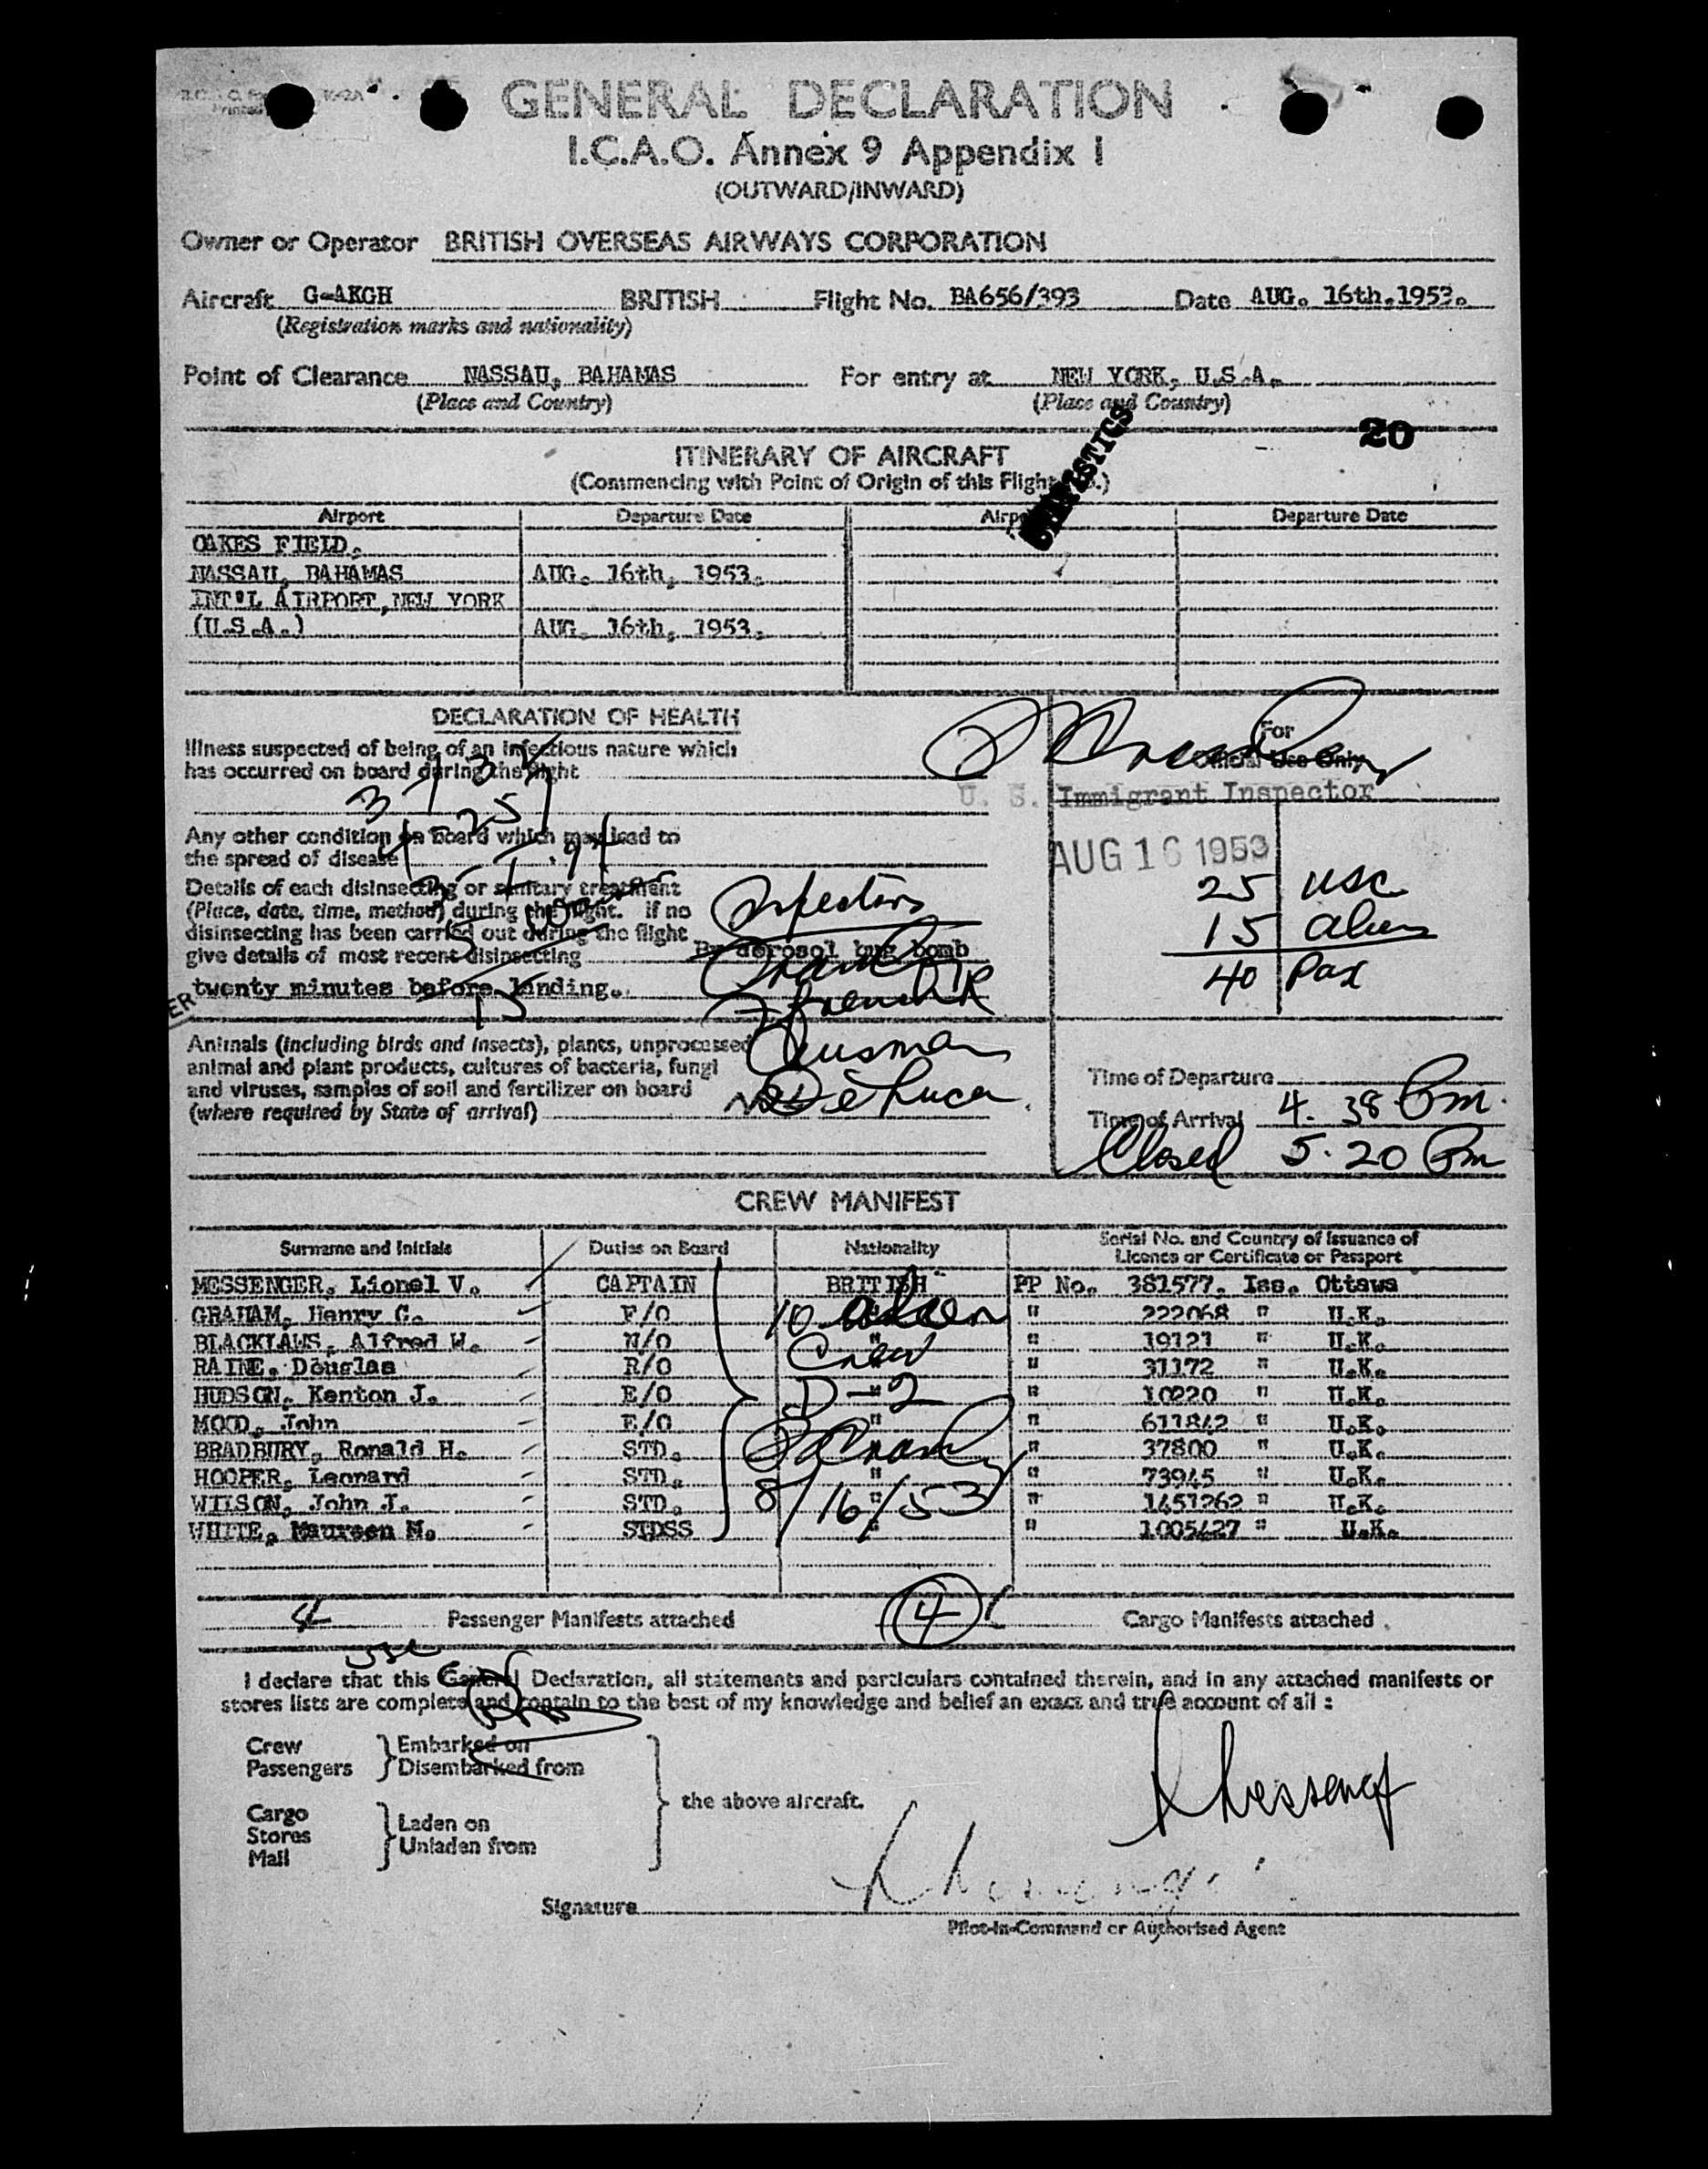 GENERAL DECLARATION
I.C.A.O. Annex 9 Appendix I
(OUTWARD/INWARD)
Owner or Operator BRITISH OVERSEAS AIRWAYS CORPORATION
Aircraft G-AKGH BRITISH Flight No. BA656/393 Date AUG. 16th.1953.
(Registration marks and nationality)
Point of Clearance NASSAU, BAHAMAS For entry at NEW YORK, U.S.A.
(Place and Country) (Place and Country)
20
STATISTICS
ITINERARY OF AIRCRAFT
(Commencing with Point of Origin of this Flight
Airport Departure Date Airport Departure Date
OAKES FIELD,
NASSAU, BAHAMAS AUG. 16th, 1953.
INT'L AIRPORT, NEW YORK
(U.S.A.) AUG. 16th, 1953.
DECLARATION OF HEALTH
For
Official Use Only
Illness suspected of being of an infectious nature which
has occurred on board during the flight
U. S. Immigrant Inspector
Any other condition on board which may lead to
the spread of disease
AUG 16 1953
25 USC
15 alien
40 Pax
Details of each disinsecting or sanitary treatment
(Place, date, time, method) during the flight. If no
disinsecting has been carried out during the flight
give details of most recent disinsecting By aerosol bug bomb
twenty minutes before landing.
Inspectors
French
De Luca
Animals (including birds and insects), plants, unprocessed
animal and plant products, cultures of bacteria, fungi
and viruses, samples of soil and fertilizer on board
(where required by State of arrival)
Time of Departure
Time of Arrival 4.38 Pm.
Closed 5.20 Pm
CREW MANIFEST
Surname and Initials Duties on Board Nationality Serial No. and Country of Issuance of
Licence or Certificate or Passport
MESSENGER, Lionel V. CAPTAIN BRITISH PP No. 381577. Iss. Ottawa
GRAHAM, Henry C. F/O " " 222068 " U.K.
BLACKLAWS, Alfred W. N/O " " 19121 " U.K.
RAINE, Douglas R/O " " 31172 " U.K.
HUDSON, Kenton J. E/O " " 10220 " U.K.
MOOD, John E/O " " 611842 " U.K.
BRADBURY, Ronald H. STD. " " 37800 " U.K.
HOOPER, Leonard STD. " " 73945 " U.K.
WILSON, John J. STD. " " 1451262 " U.K.
WHITE, Maureen M. STDSS " " 1005427 " U.K.
10 alien
Crew
D-2
8/16/53
4 Passenger Manifests attached 4 Cargo Manifests attached
I declare that this General Declaration, all statements and particulars contained therein, and in any attached manifests or
stores lists are complete and contain to the best of my knowledge and belief an exact and true account of all :
Crew
Passengers
Embarked on
Disembarked from
the above aircraft.
Cargo
Stores
Mail
Laden on
Unladen from
Signature
Pilot-in-Command or Authorised Agent